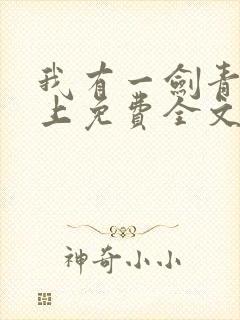 我有一剑青
上免费全文
神奇小小